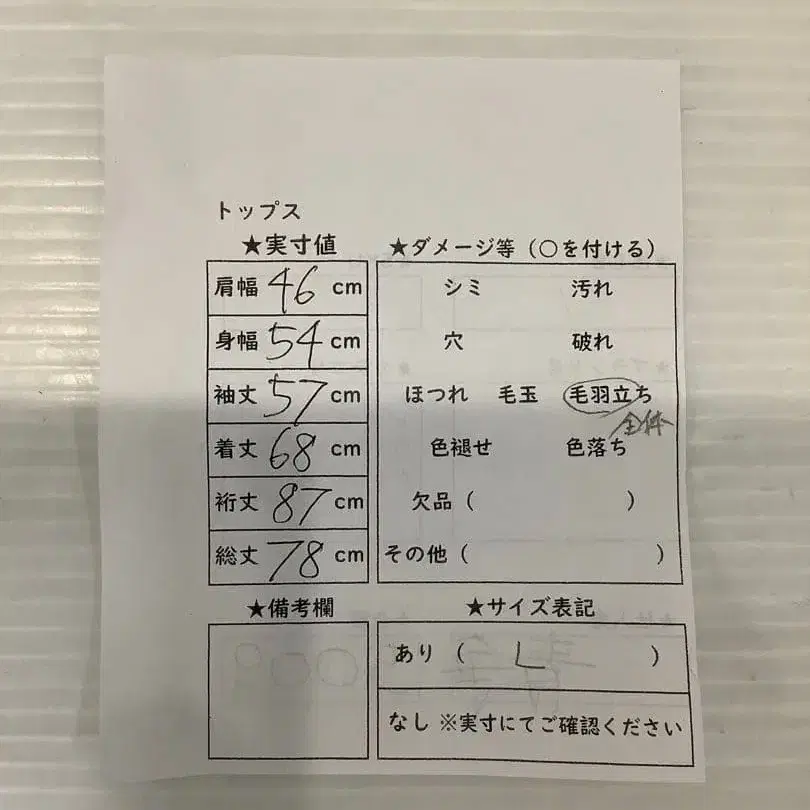 トップス
★実寸値
肩幅 46 cm
身幅 54 cm
袖丈 57 cm
着丈 68 cm
裄丈 87 cm
総丈 78 cm
★ダメージ等（○を付ける）
シミ 汚れ
穴 破れ
ほつれ 毛玉 毛羽立ち
全体
色褪せ 色落ち
欠品（ ）
その他（ ）
★備考欄
★サイズ表記
あり（ L ）
なし ※実寸にてご確認ください